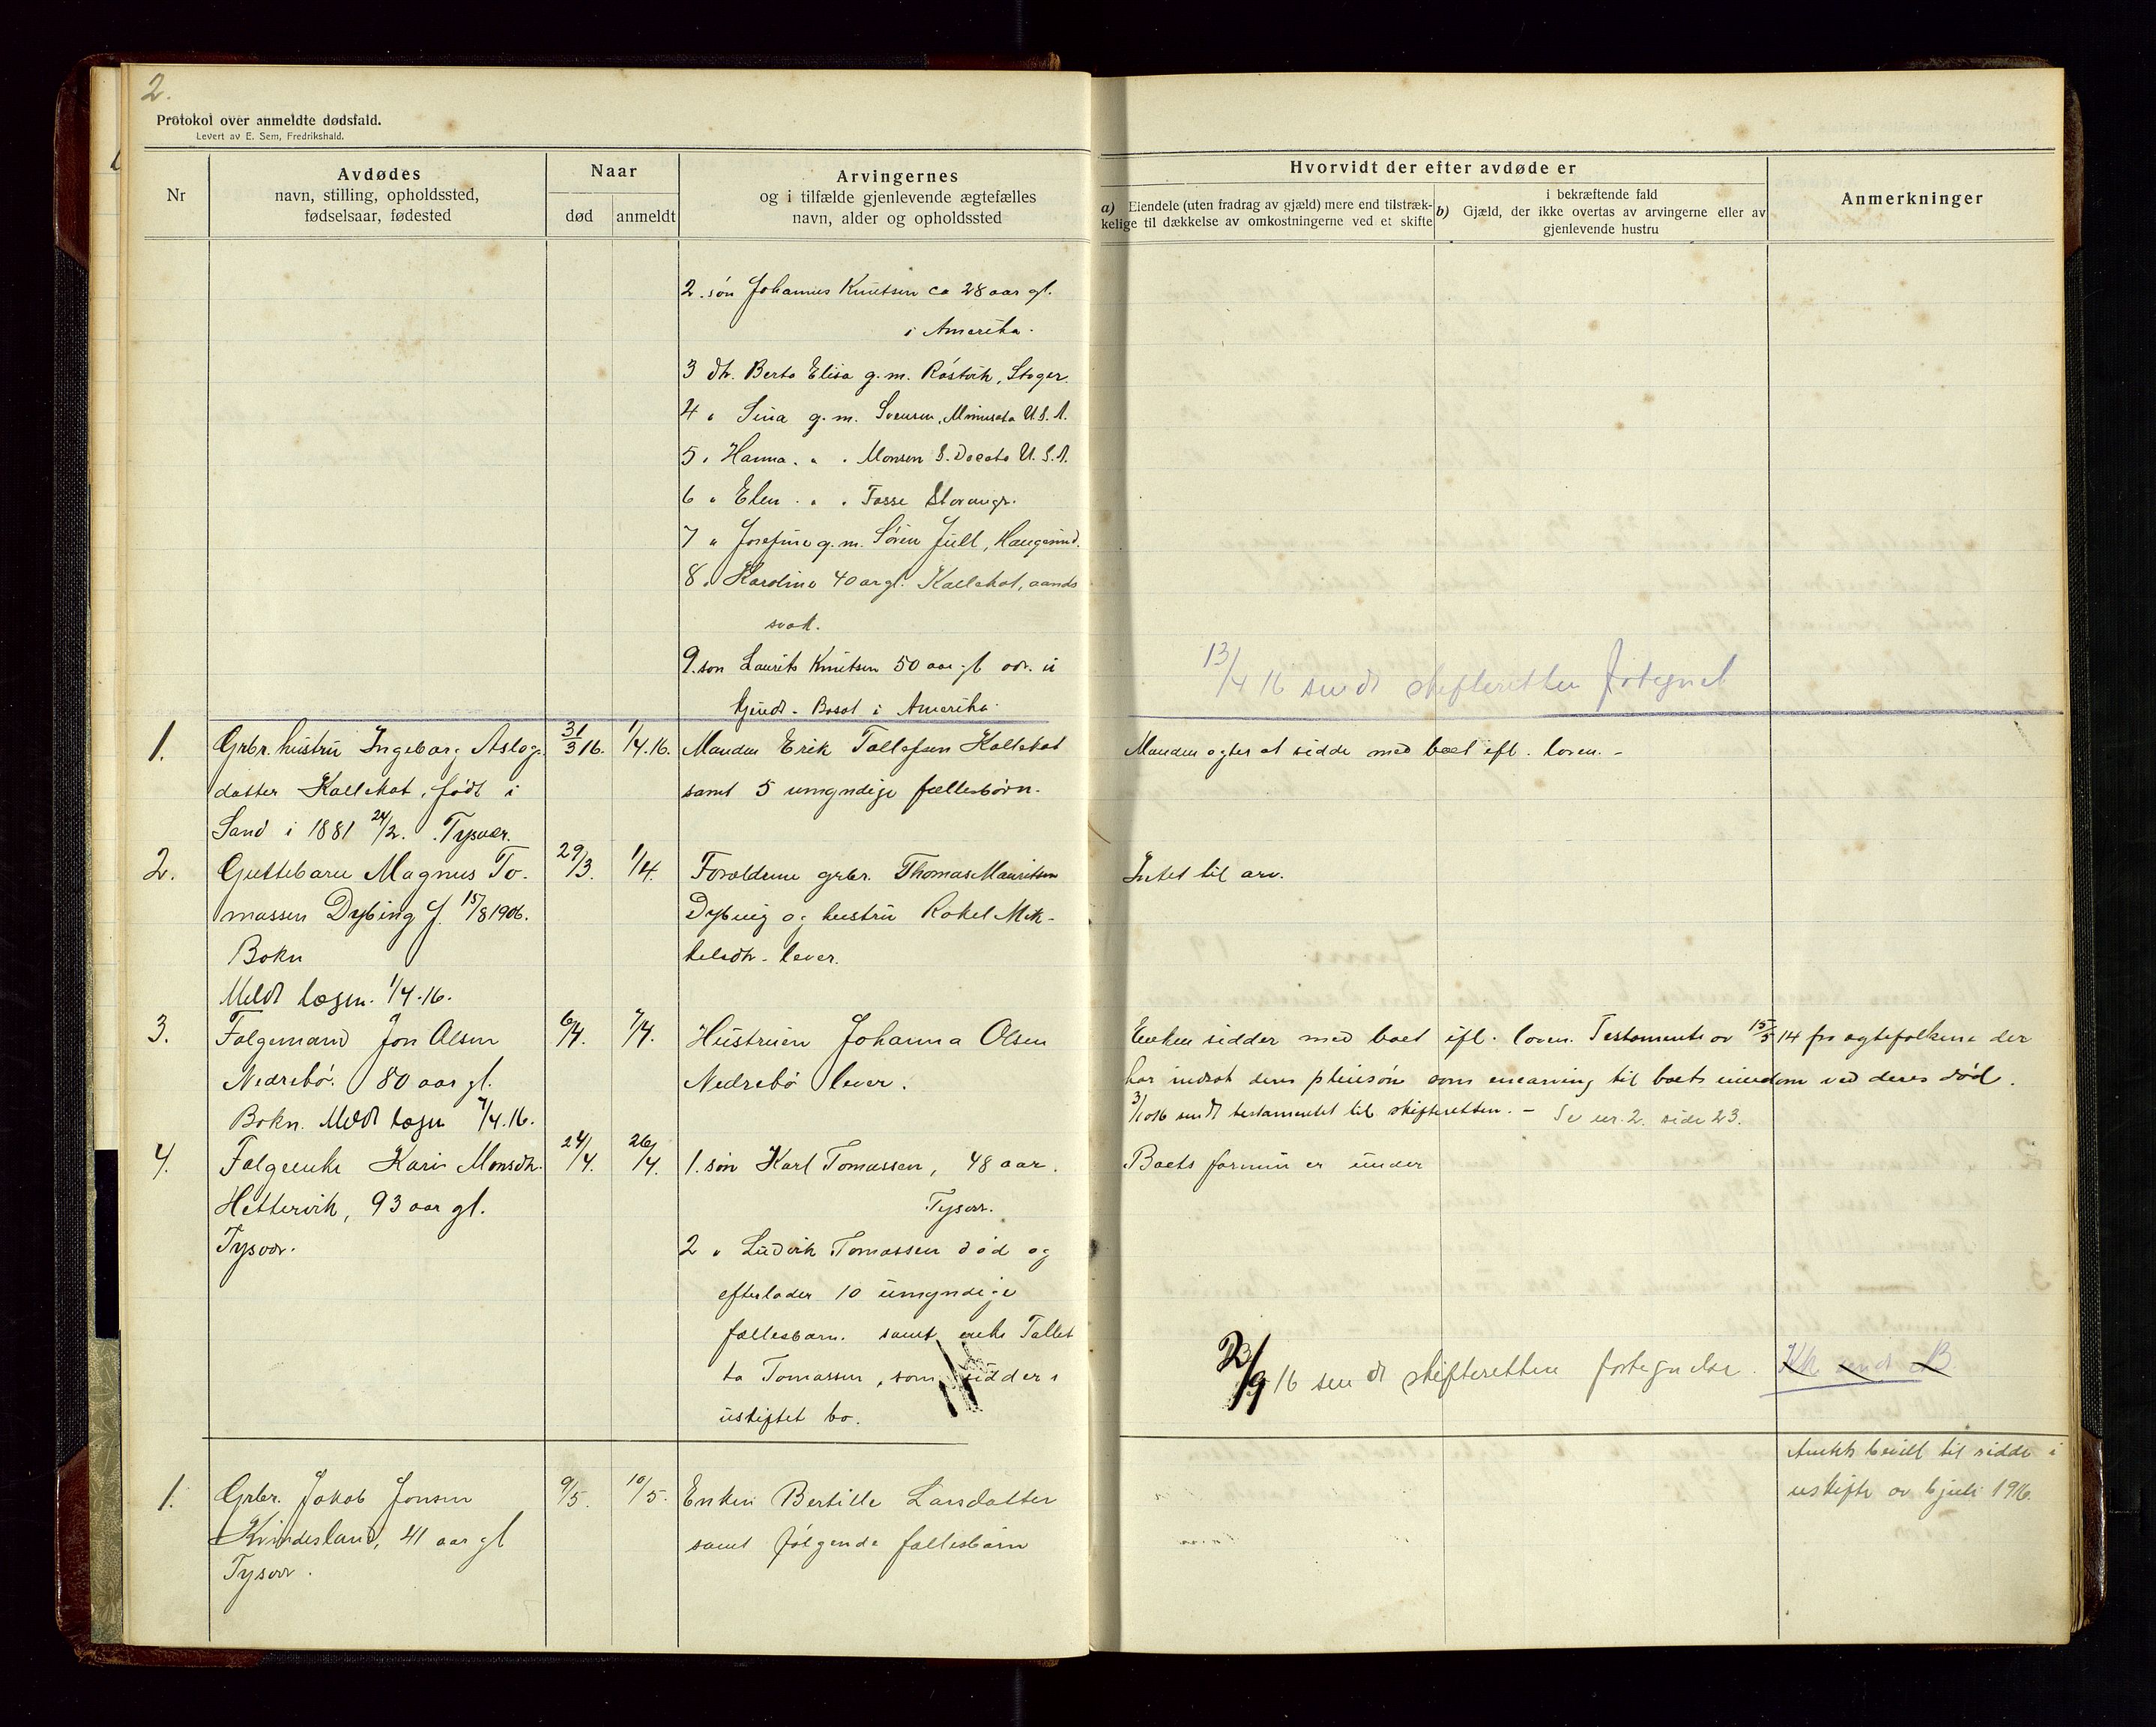 2.
Protokol over anmeldte dødsfald.
Levert av E. Sem, Fredrikshald.
Nr
Avdødes
navn, stilling, opholdssted,
fødselsaar, fødested
Naar
død
anmeldt
Arvingernes
og i tilfælde gjenlevende ægtefælles
navn, alder og opholdssted
Hvorvidt der efter avdøde er
a) Eiendele (uten fradrag av gjæld) mere end tilstræk-
kelige til dækkelse av omkostningerne ved et skifte
i bekræftende fald
b) Gjæld, der ikke overtas av arvingerne eller av
gjenlevende hustru
Anmerkninger
2. søn Johannes Knutsen ca 28 aar gl.
i Amerika.
3 dtr. Berta Elisa g. m. Røstvik, Stvger.
4 " Sina g. m. Svensen, Minnesota U.S.A.
5 " Hanna " " Monsen S. Dacota U.S.A.
6 " Elen " " Fosse Stavangr.
7 " Josefine g. m. Søren Juell, Haugesund.
8 " Karoline 40 aar gl. Kallekot, aands
svak.
9. søn Laurits Knutsen 50 aar gl
Bosat i Amerika.
13/4 16 sendt skifteretten
1.
Grbr. hustru Ingeborg Aslag-
datter Kallekot, født i
Sand i 1881 24/2. Tysvær.
31/3 16.
1/4.16.
Manden Erik Tollefsen Kallekot
samt 5 umyndige fællesbørn.
Manden agter at sidde med boet ifl. loven. -
2.
Guttebarn Magnus To-
massen Dybing f. 15/8 1906.
Bokn
Meldt lægen. 1/4.16.
29/3.
1/4.
Forældrene grbr. Thomas Mauritsen
Dybing og hustru Rakel Mik-
kelsdtr. lever.
Intet til arv.
3.
Følgemand Jon Olsen
Nedrebø. 80 aar gl.
Bokn. Meldt lægen 7/4.16.
6/4.
7/4.
Hustruen Johanna Olsen
Nedrebø lever.
Enken sidder med boet ifl. loven. Testamente av 15/5 14 fra egtefolkene der
har indsat deres pleiesøn som enearving til boets eiendom ved deres død.
3/10 16 sendt testamentet til skifteretten. - Se nr. 2. side 23.
4.
Følgeenke Kari Monsdtr.
Hettervik, 93 aar gl.
Tysvær.
24/4.
26/4.
1. søn Karl Tomassen, 48 aar.
Tysvær.
2 " Ludvik Tomassen død og
efterlader 10 umyndige
fællesbarn. samt enke Tallet
ta Tomassen, som sidder i
uskiftet bo.
Boets formue er under
23/9 16 sendt skifteretten fortegnelse.
1.
Grbr. Jakob Jonsen
Kvindesland, 41 aar gl
Tysvær.
9/5.
10/5.
Enken Bertille Larsdatter
samt følgende fællesbørn
bevill til sidde i
uskifte av 6 juli 1916.